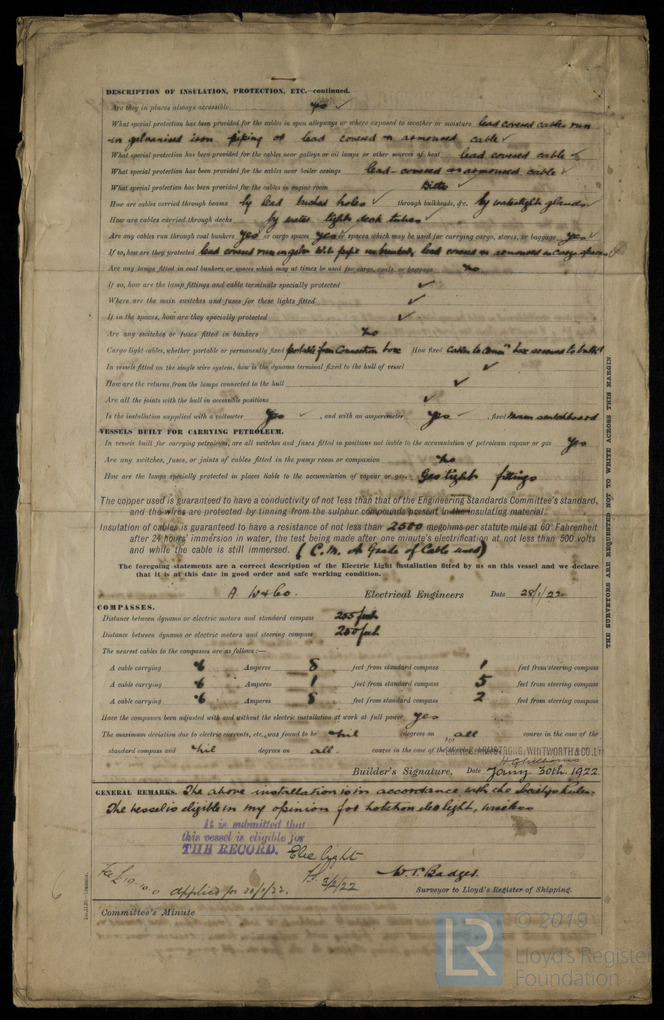 DESCRIPTION OF INSULATION, PROTECTION, ETC.—continued.
Are they in places always accessible yes ✓
What special protection has been provided for the cables in open alleyways or where exposed to weather or moisture lead covered cables run
in galvanised iron piping or lead covered & armoured cable ✓
What special protection has been provided for the cables near galleys or oil lamps or other sources of heat lead covered cable ✓
What special protection has been provided for the cables near boiler casings lead covered & armoured cable ✓
What special protection has been provided for the cables in engine room Ditto ✓
How are cables carried through beams by lead bushed holes ✓ through bulkheads, &c. by watertight glands ✓
How are cables carried through decks by water tight deck tubes ✓
Are any cables run through coal bunkers yes or cargo spaces yes or spaces which may be used for carrying cargo, stores, or baggage yes ✓
If so, how are they protected lead covered run in galvd W.I. pipe in bunkers, lead covered & armoured in Cargo spaces
Are any lamps fitted in coal bunkers or spaces which may at times be used for cargo, coals, or baggage no
If so, how are the lamp fittings and cable terminals specially protected ✓
Where are the main switches and fuses for these lights fitted ✓
If in the spaces, how are they specially protected ✓
Are any switches or fuses fitted in bunkers no
Cargo light cables, whether portable or permanently fixed portable from Connection box How fixed Cables to Connn box secured to bulkd
In vessels fitted on the single wire system, how is the dynamo terminal fixed to the hull of vessel ✓
How are the returns from the lamps connected to the hull ✓
Are all the joints with the hull in accessible positions ✓
Is the installation supplied with a voltmeter yes ✓, and with an amperemeter yes ✓, fixed main switchboard
VESSELS BUILT FOR CARRYING PETROLEUM.
In vessels built for carrying petroleum, are all switches and fuses fitted in positions not liable to the accumulation of petroleum vapour or gas yes
Are any switches, fuses, or joints of cables fitted in the pump room or companion no
How are the lamps specially protected in places liable to the accumulation of vapour or gas Gas tight fittings
The copper used is guaranteed to have a conductivity of not less than that of the Engineering Standards Committee's standard,
and the wires are protected by tinning from the sulphur compounds present in the insulating material.
Insulation of cables is guaranteed to have a resistance of not less than 2500 megohms per statute mile at 60° Fahrenheit
after 24 hours' immersion in water, the test being made after one minute's electrification at not less than 500 volts
and while the cable is still immersed. (C.M.A. Grade of Cable used)
The foregoing statements are a correct description of the Electric Light Installation fitted by us on this vessel and we declare
that it is at this date in good order and safe working condition.
A. W & Co. Electrical Engineers Date 28/1/22
COMPASSES.
Distance between dynamo or electric motors and standard compass 255 feet
Distance between dynamo or electric motors and steering compass 250 feet
The nearest cables to the compasses are as follows:—
A cable carrying .6 Amperes 8 feet from standard compass 1 feet from steering compass
A cable carrying .6 Amperes 1 feet from standard compass 5 feet from steering compass
A cable carrying .6 Amperes 8 feet from standard compass 2 feet from steering compass
Have the compasses been adjusted with and without the electric installation at work at full power yes
The maximum deviation due to electric currents, etc., was found to be nil degrees on all course in the case of the
standard compass and nil degrees on all course in the case of the steering compass
FOR SIR W.G. ARMSTRONG, WHITWORTH & CO. LTD
Builder's Signature. Date Jany 30th 1922
GENERAL REMARKS. The above installation is in accordance with the Societys Rules.
The vessel is eligible in my opinion for notation elec light, wireless
It is submitted that
this vessel is eligible for
THE RECORD. Elec light
Fee £10.10.0 applied for 20/1/22. 3/2/22 W.T. Badger.
Surveyor to Lloyd's Register of Shipping.
Committee's Minute
THE SURVEYORS ARE REQUESTED NOT TO WRITE ACROSS THIS MARGIN
© 2019
LR
Lloyd's Register
Foundation